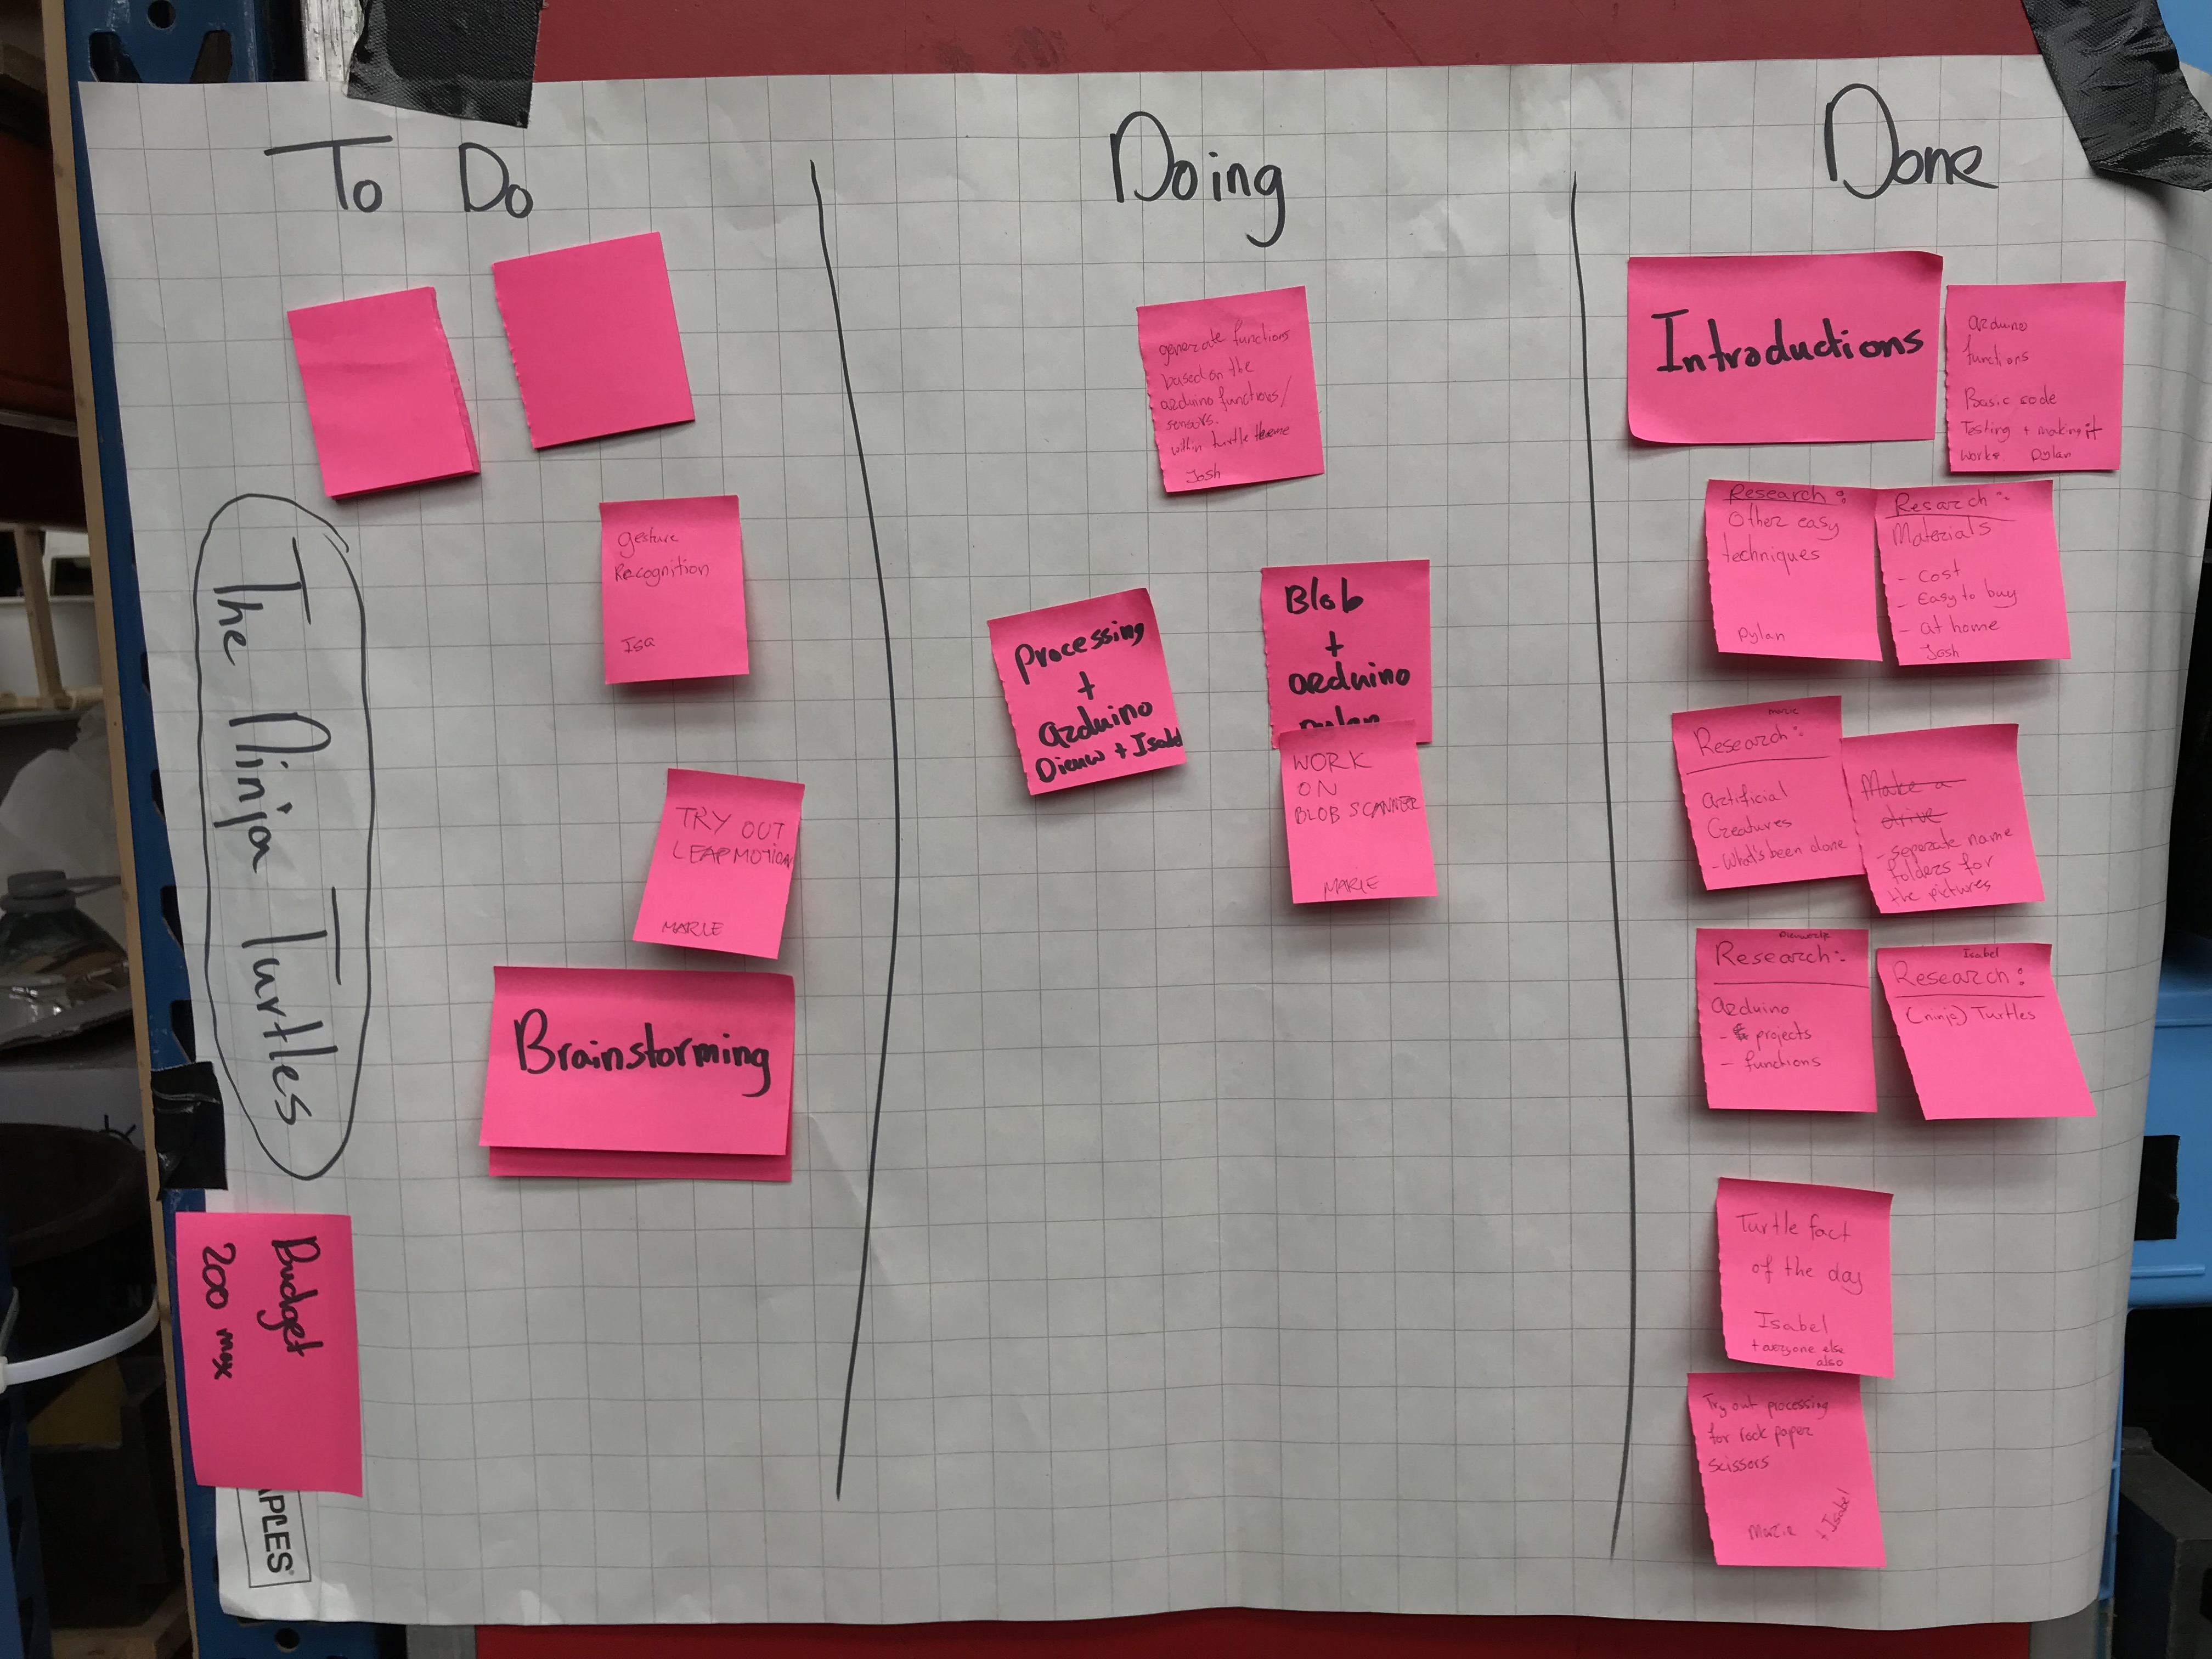 To Do
Doing
Done
The Ninja Turtles
gesture
Recognition
Isa
TRY OUT
LEAPMOTION
MARIE
Brainstorming
Budget
200 max
APLES
generate functions
based on the
arduino functions/
sensors.
within turtle theme
Josh
processing
+
arduino
Dieuw + Isabel
Blob
+
arduino
Dylan
WORK
ON
BLOB SCANNER
MARIE
Introductions
arduino
functions
Basic code
Testing + making it
work
Dylan
Research:
Other easy
techniques
Dylan
Resarch:
Materials
- Cost
- Easy to buy
- at home
Josh
Marie
Research:
Artificial
Creatures
- What's been done
Make a
drive
- seperate name
folders for
the pictures
Research:
arduino
- projects
- functions
Isabel
Research:
(ninja) Turtles
Turtle fact
of the day
Isabel
+ everyone else
also
Try out processing
for rock paper
scissors
Marie
+ Isabel